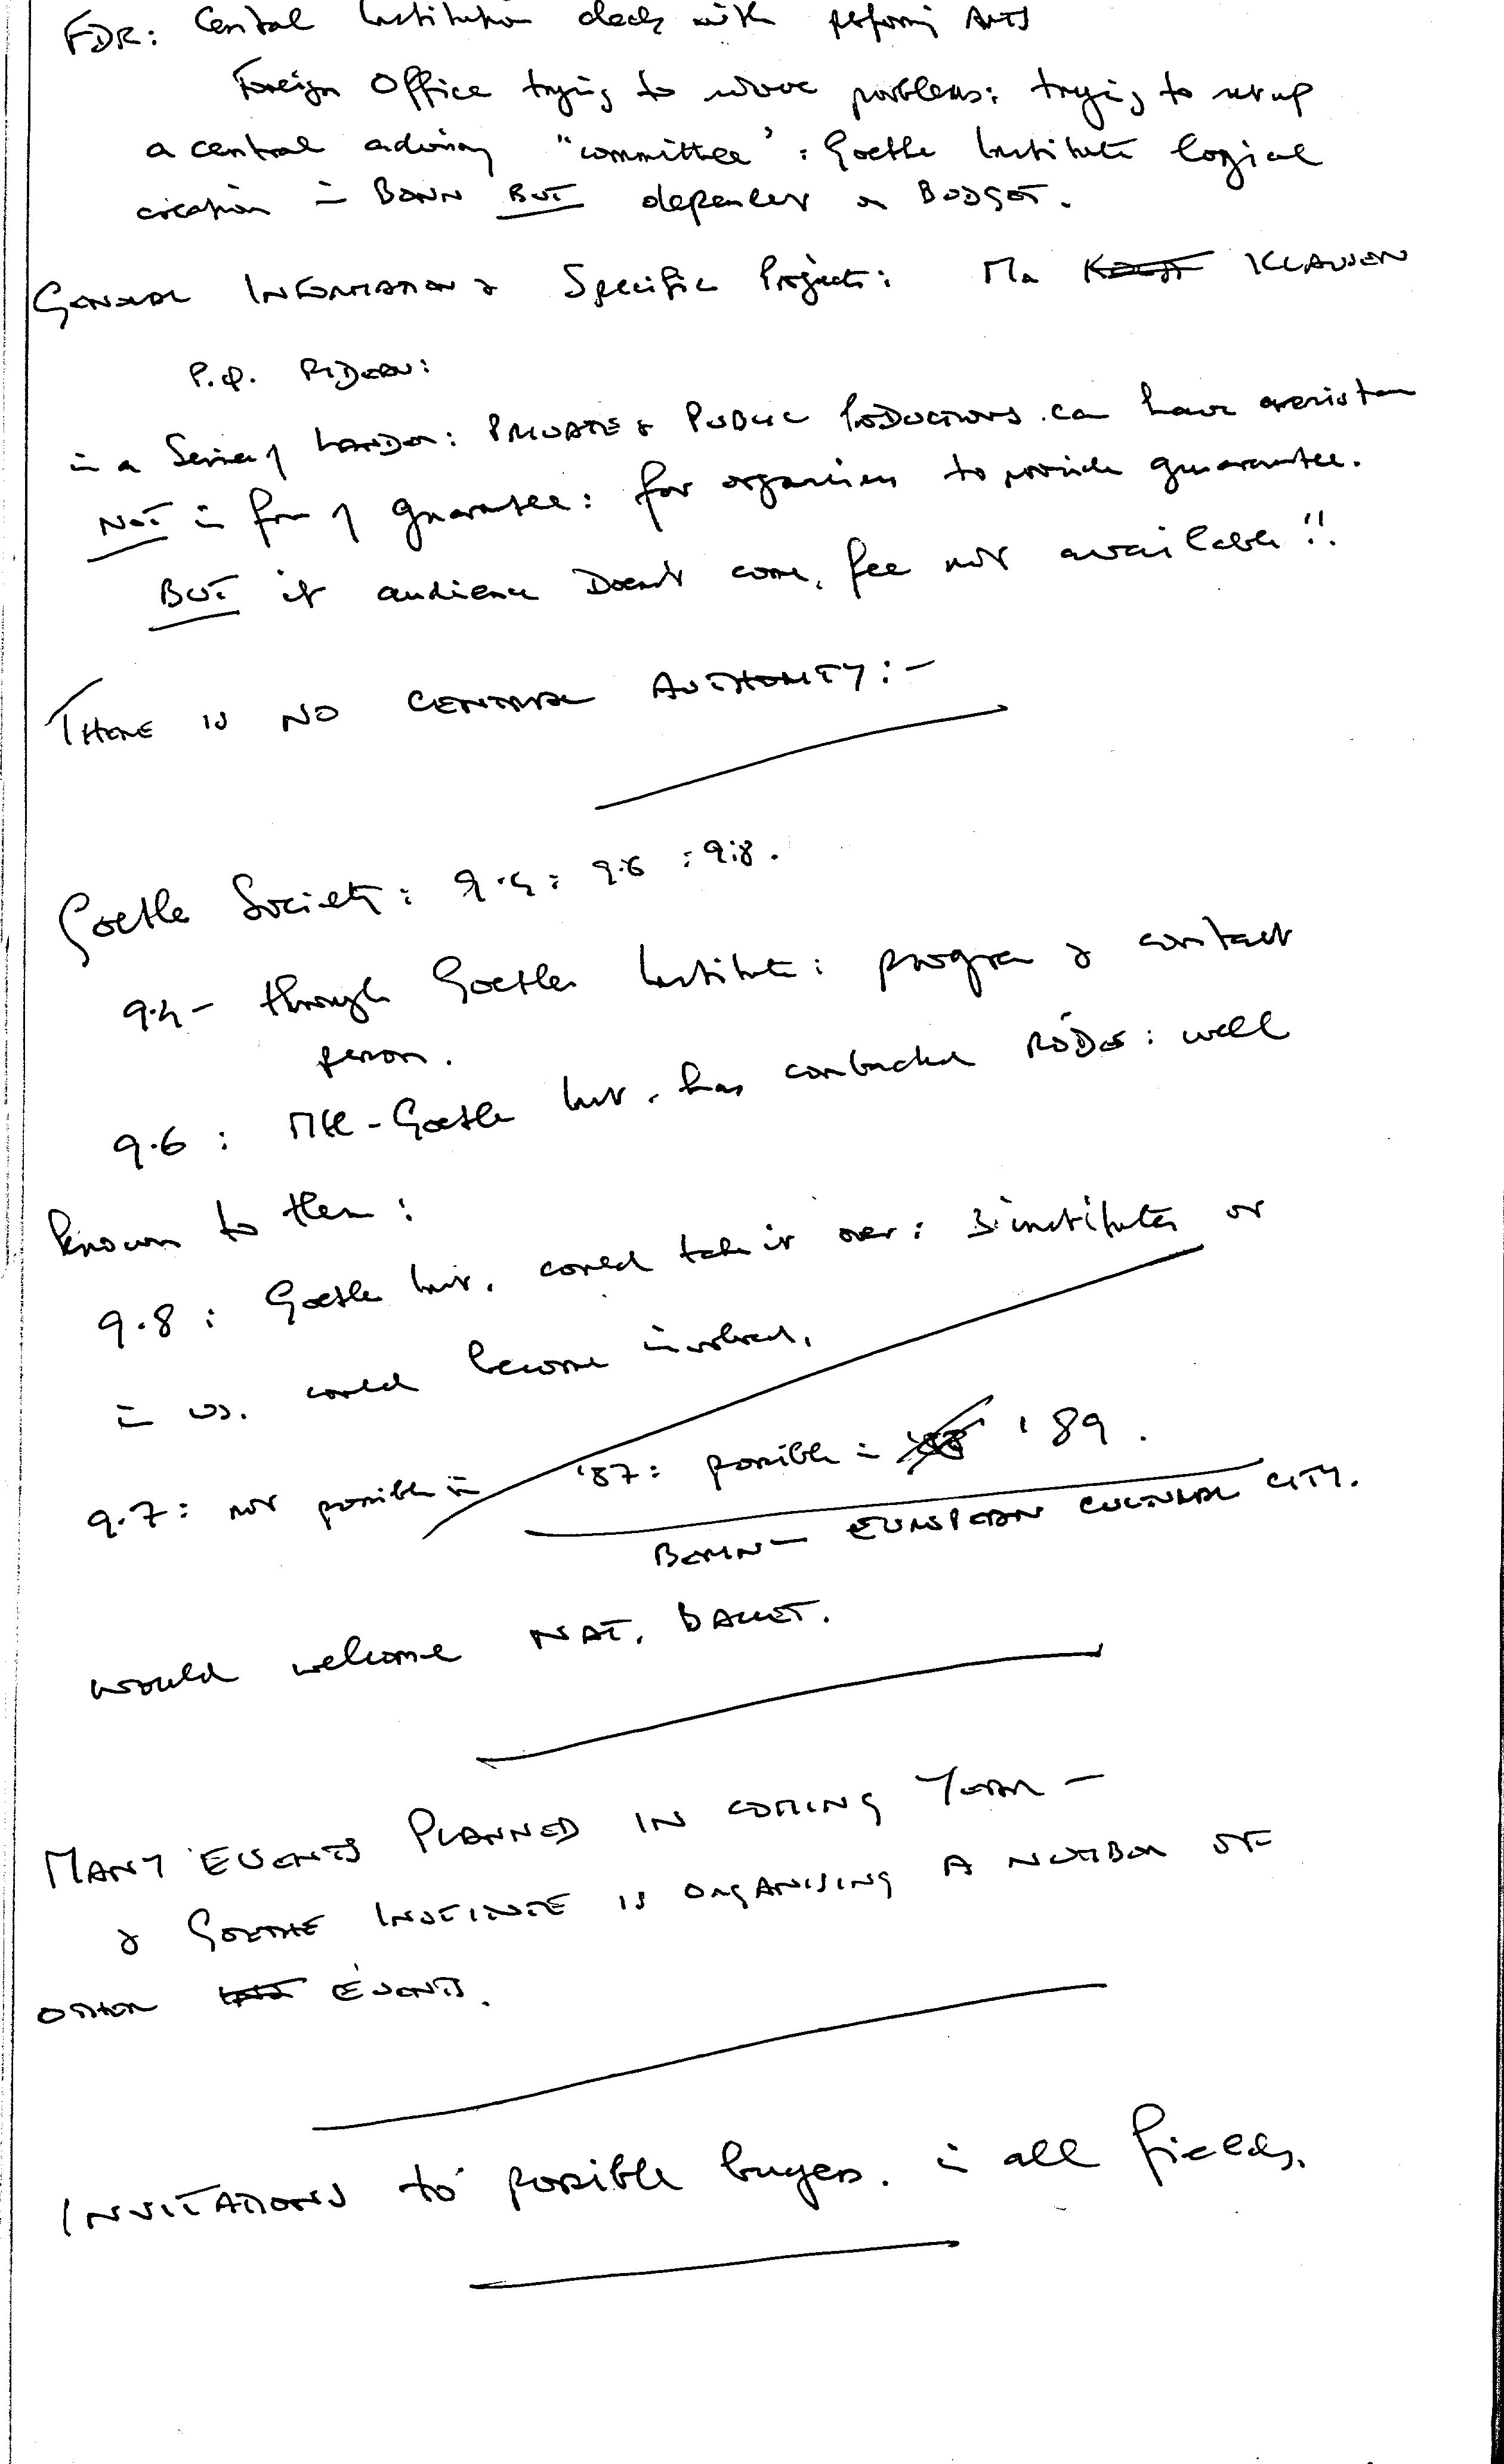 FDR: Central Institution deals with performing ARTS
Foreign Office trying to solve problems: trying to set up
a central advisory "committee": Goethe Institute logical
creation in BONN BUT dependent on BUDGET.
GENERAL INFORMATION & Specific Projects: Mr KLAUSEN
P.Q.
in a Series of LANDER: PRIVATE & PUBLIC PRODUCTIONS can have assistance
NOT in form of guarantee: for organisers to provide guarantee.
BUT if audience Doesn't come, fee not available!!
THERE IS NO CENTRAL AUTHORITY:-
Goethe Society: 9.4: 9.6 : 9.8.
9.4- through Goethe Institute: program & contact
person.
9.6: Mtl-Goethe Inst. has contacted : well
known to them:
9.8: Goethe Inst. could take it over: 3 institutes or
in US. could become involved.
9.7: not possible in '87: possible in '89.
BERLIN - EUROPEAN CULTURAL CITY.
would welcome NAT. BALLET.
MANY EVENTS PLANNED IN COMING YEAR -
& GOETHE INSTITUTE IS ORGANISING A NUMBER OF
OTHER EVENTS.
INVITATIONS to possible buyers. in all fields.